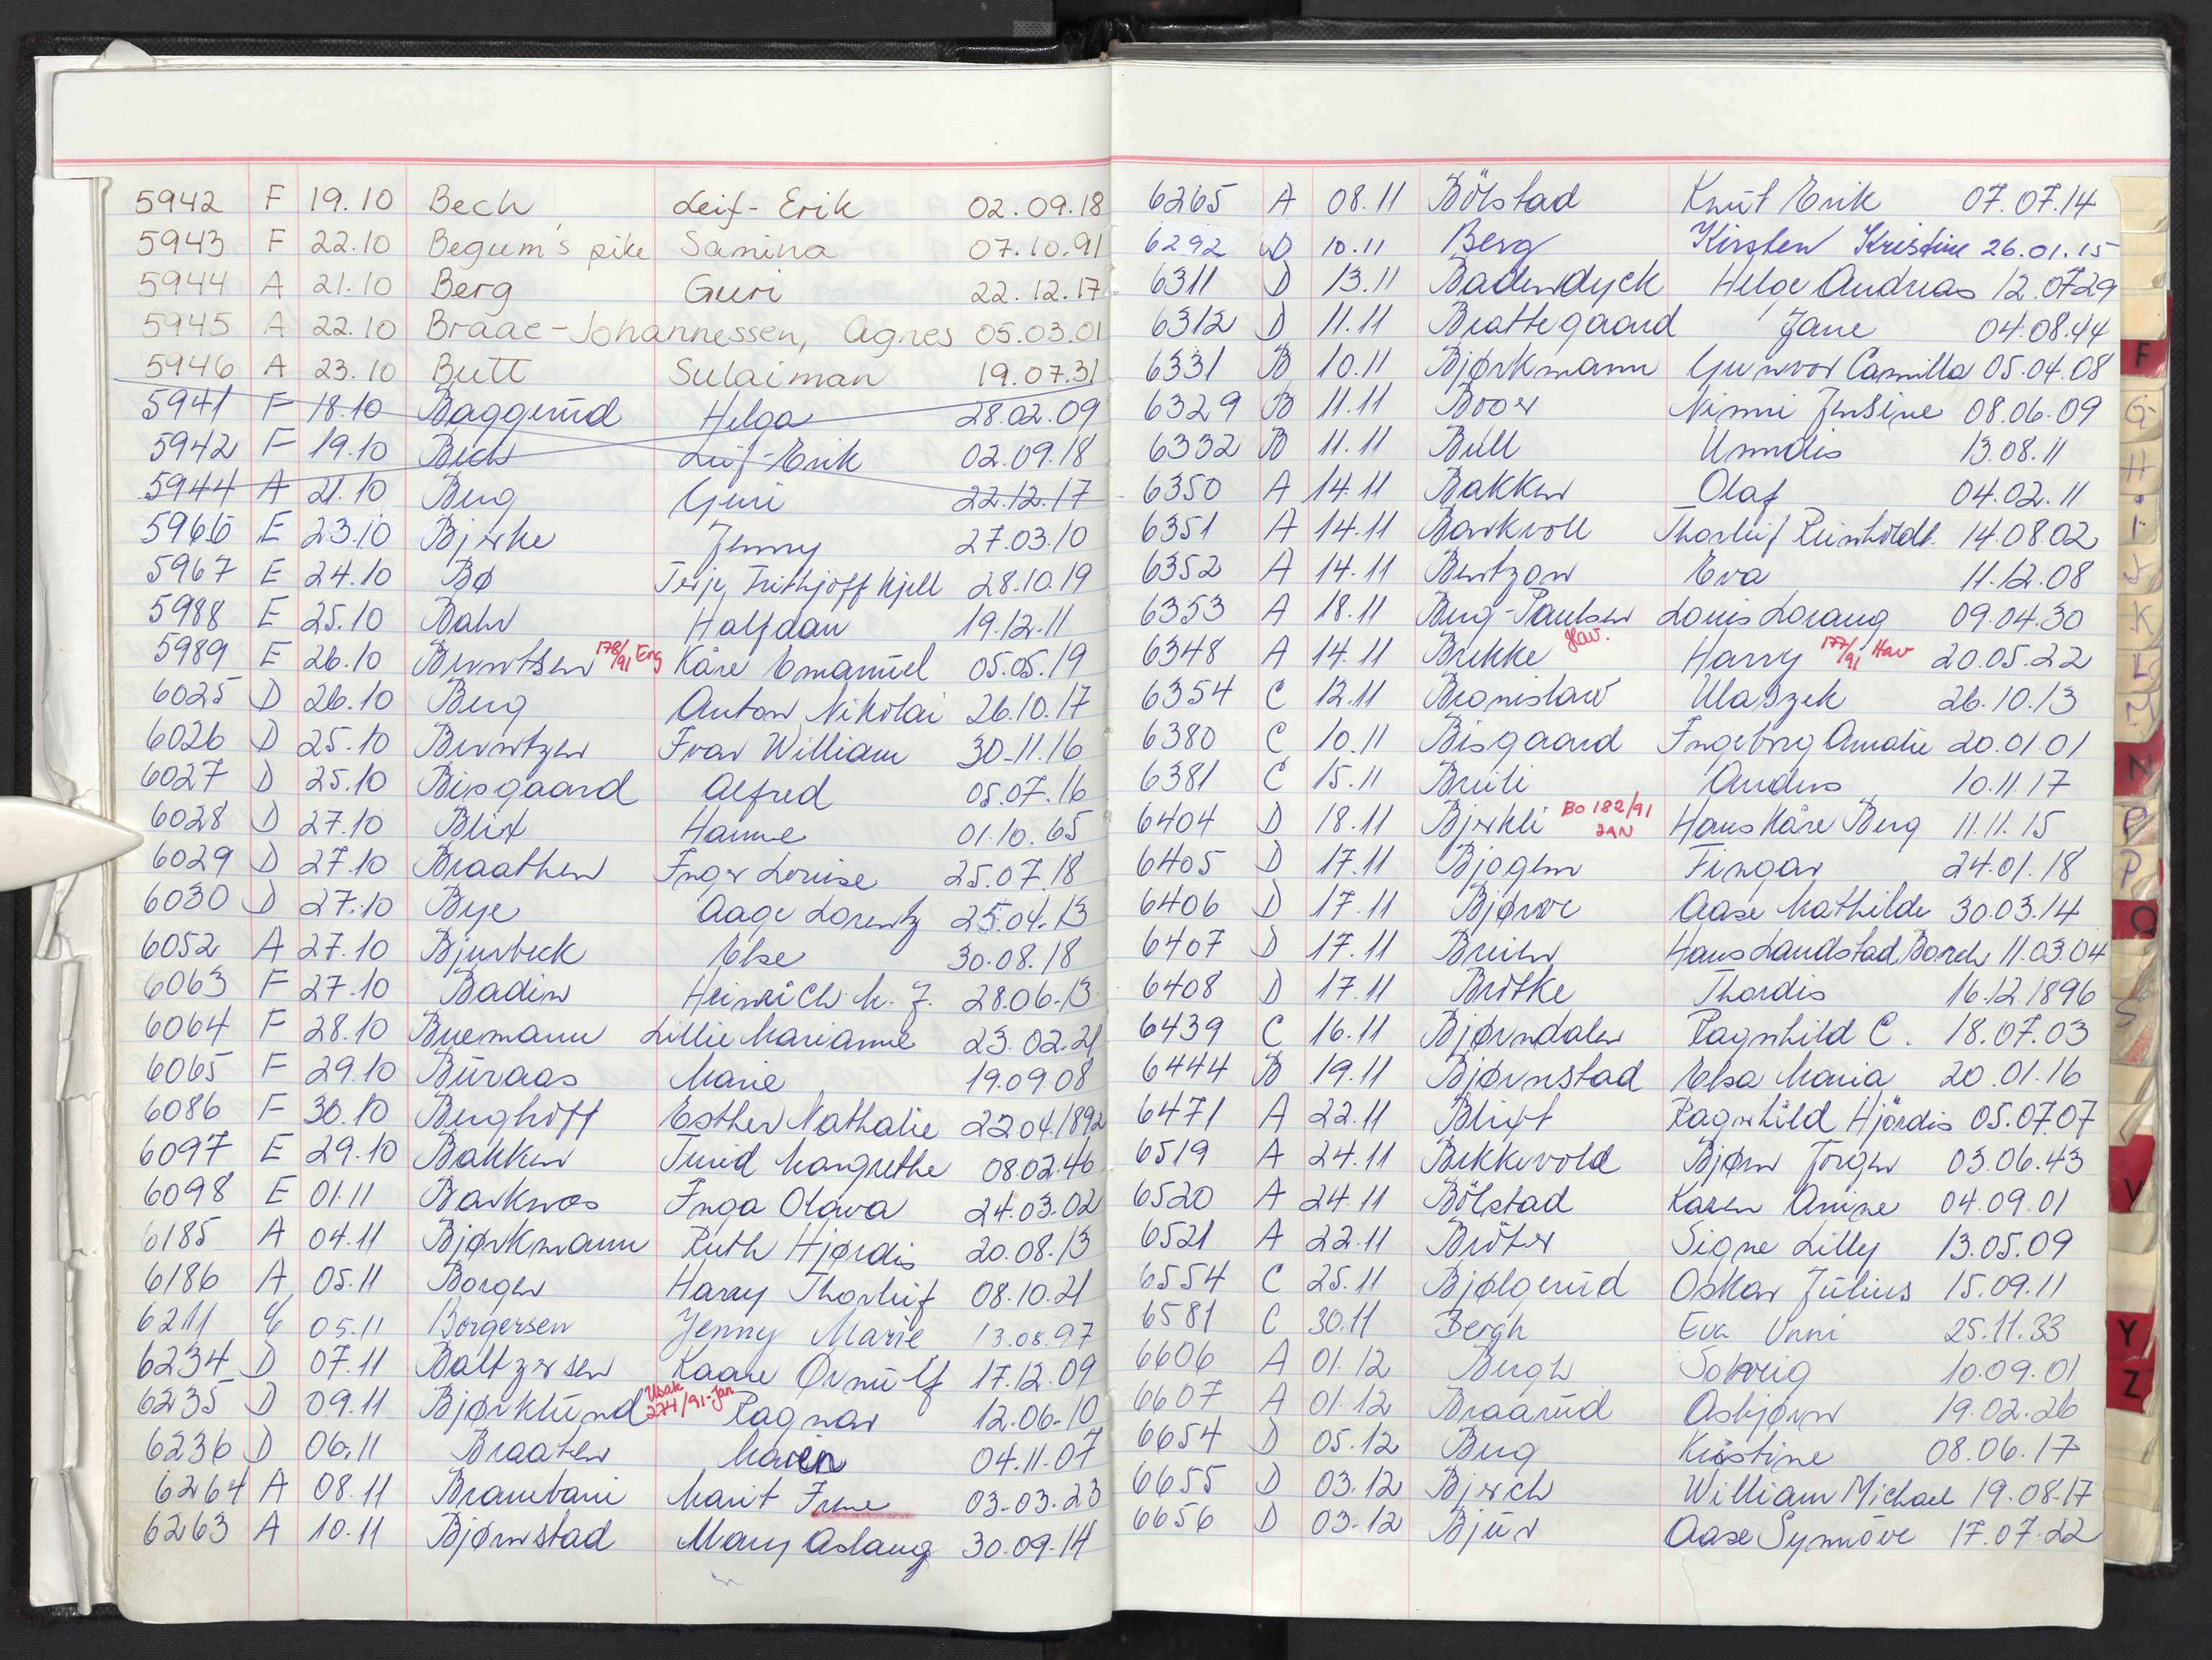 5942 F 19.10 Bech Leif-Erik 02.09.18
5943 F 22.10 Begum's pike Samina 07.10.91
5944 A 21.10 Berg Guri 22.12.17
5945 A 22.10 Braae-Johannessen, Agnes 05.03.01
5946 A 23.10 Butt Sulaiman 19.07.31
5941 F 18.10 Baggerud Helga 28.02.09
5942 F 19.10 Bech Leif-Erik 02.09.18
5944 A 21.10 Berg Guri 22.12.17
5966 E 23.10 Bjerke Jenny 27.03.10
5967 E 24.10 Bø Terje Frithjoff Kjell 28.10.19
5988 E 25.10 Bahr Halfdan 19.12.11
5989 E 26.10 Berntsen 178/91 Eng Kåre Emanuel 05.05.19
6025 D 26.10 Berg Anton Nikolai 26.10.17
6026 D 25.10 Berntzen Ivar William 30.11.16
6027 D 25.10 Bisgaard Alfred 05.07.16
6028 D 27.10 Blix Hanne 01.10.65
6029 D 27.10 Braathen Inger Louise 25.07.18
6030 D 27.10 Bye Aage Lorentz 25.04.13
6052 A 27.10 Bjurbeck Else 30.08.18
6063 F 27.10 Badin Heinrich M. J. 28.06.13
6064 F 28.10 Buemann Lillie Marianne 23.02.21
6065 F 29.10 Buraas Marie 19.09.08
6086 F 30.10 Berghoff Esther Nathalie 22.04.1892
6097 E 29.10 Bakken Turid Margrethe 08.02.46
6098 E 01.11 Barknes Inga Olava 24.03.02
6185 A 04.11 Bjørkmann Ruth Hjørdis 20.08.13
6186 A 05.11 Borgen Harry Thorleif 08.10.21
6211 C 05.11 Borgersen Jenny Marie 13.08.97
6234 D 07.11 Baltzersen Kaare Ørnulf 17.12.09
6235 D 09.11 Bjørklund Usak 274/91-Jan Ragnar 12.06.10
6236 D 06.11 Braaten Maren 04.11.07
6264 A 08.11 Brambani Marit Irene 03.03.23
6263 A 10.11 Bjørnstad Mary Aslaug 30.09.14
6265 A 08.11 Bölstad Knut Erik 07.07.14
6292 D 10.11 Berg Kirsten Kristine 26.01.15
6311 D 13.11 Badendyck Helge Andreas 12.07.29
6312 D 11.11 Brattegaard Jane 04.08.44
6331 B 10.11 Bjørkmann Gunvor Camilla 05.04.08
6329 B 11.11 Booer Ninni Jensine 08.06.09
6332 B 11.11 Bull Unndis 13.08.11
6350 A 14.11 Bakken Olaf 04.02.11
6351 A 14.11 Barkvoll Thorleif Reinholdt 14.08.02
6352 A 14.11 Bentzon Eva 11.12.08
6353 A 18.11 Berg-Paulsen Louis Lorang 09.04.30
6348 A 14.11 Brekke Hav. Harry 177/91 Hav 20.05.22
6354 C 12.11 Bronislaw Ulaszek 26.10.13
6380 C 10.11 Bisgaard Ingeborg Amalie 20.01.01
6381 C 15.11 Breili Anders 10.11.17
6404 D 18.11 Bjerkli BO 182/91 JAN Hans Kåre Berg 11.11.15
6405 D 17.11 Bjogen Fingar 24.01.18
6406 D 17.11 Bjørvе Aase Mathilde 30.03.14
6407 D 17.11 Breien Hans Landstad Borch 11.03.04
6408 D 17.11 Britke Thordis 16.12.1896
6439 C 16.11 Bjørndalen Ragnhild C. 18.07.03
6444 B 19.11 Bjørnstad Elsa Maria 20.01.16
6471 A 22.11 Blixt Ragnhild Hjördis 05.07.07
6519 A 24.11 Bekkevold Bjørn Jörgen 03.06.43
6520 A 24.11 Bölstad Karen Anine 04.09.01
6521 A 22.11 Bröter Signe Lilly 13.05.09
6554 C 25.11 Bjølgerud Oskar Julius 15.09.11
6581 C 30.11 Bergh Eva Unni 25.11.33
6606 A 01.12 Bergh Solveig 10.09.01
6607 A 01.12 Braarud Asbjørn 19.02.26
6654 D 05.12 Berg Kristine 08.06.17
6655 D 03.12 Bjerch William Michael 19.08.17
6656 D 03.12 Bjur Aase Synnöve 17.07.22
F
G
H
I
J
K
L
M
N
P
P
Q
S
V
Y
Z